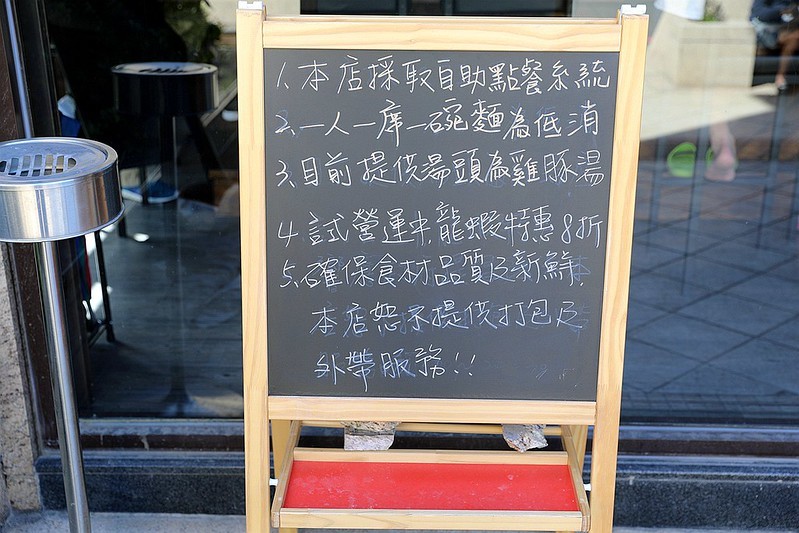 1、本店採取自助點餐系統
2、一人一席一碗麵為低消
3、目前提供湯頭為雞豚湯
4、試營運中,龍蝦特惠8折
5、確保食材品質及新鮮,
本店恕不提供打包及
外帶服務!!